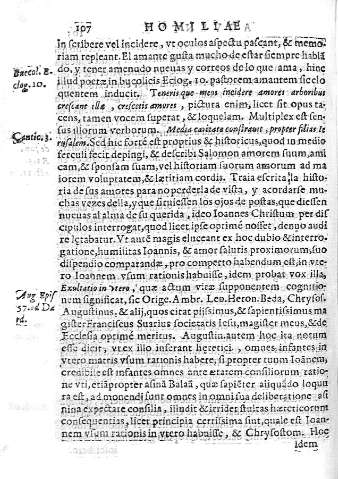 107 HOMILIAE
In scribere vel incidere, vt oculos aspectu pascant, & memo-
riam repleant. El amante gusta mucho de estar siempre hablā
do, y tener amenudo nueuas y correos de lo que ama, hinc
Bucol. E-
clog. 10.
illud poetæ in bucolicis Eclog. 10. pastorem amantem sic elo
quentem inducit. Teneris que meos incidere amores arboribus
crescent illæ, crescetis amores, pictura enim, licet sit opus ta-
cens, tamen vocem superat, & loquelam. Multiplex est sen-
Cantic. 3.
sus illorum verborum. Media caritate constrauit, propter filias Ie
rusalem. Sed hic forte est proprius & historicus, quod in medio
ferculi fecit depingi, & describi Salomon amorem suum, ami
cam, & sponsam suam, vel historiam suorum amorum ad ma
iorem voluptatem, & lætitiam cordis. Traia escrita la historia
de sus amores para no perderla de vista, y acordarse mu
chas vezes della, y que siruiessen los ojos de postas, que diessen
nueuas al alma de su querida, ideo Ioannes Christum per dis
cipulos interrogat, quod licet ipse optimè nosset, denuo audi
re lętabatur. Vt autē magis eluceant ex hoc dubio & interro-
gatione, humilitas Ioannis, & amor salutis proximorum, suo
dispendio comparandæ, pro comperto habendum est, in vte-
ro Ioannem vsum rationis habuisse, idem probat vox illa,
Exultatio in vtero, quæ actum vitæ supponentem cognitio-
Aug Epis
57. ad Da
rd.
nem significat, sic Orige. Ambr. Leo. Heron. Beda, Chrysos.
Augustinus, & alij, quos citat pijssimus, & sapientissimus ma
gister Franciscus Suarius societatis Iesu, magister meus, & de
Ecclesia optimè meritus. Augustin. autem hoc ita notum
esse dicit, vt ex illo inferant heretici, omnes infantes, in
vtero matris vsum rationis habere, si propter vnum Ioānem,
credibile est infantes omnes ante ætatem consiliorum ratio-
ne vti, etiā propter asinā Balaā, quæ sapiēter aliquādo loqun
ta est, ad monendi sunt omnes in omni sua deliberatione asi
nina expectare consilia, illudit & irridet stultas hæreticorum
consequentias, licet principia certissima sint, quale est Ioan-
nem vsum rationis in vtero habuisse, & Chrysostom. Hoc
idem